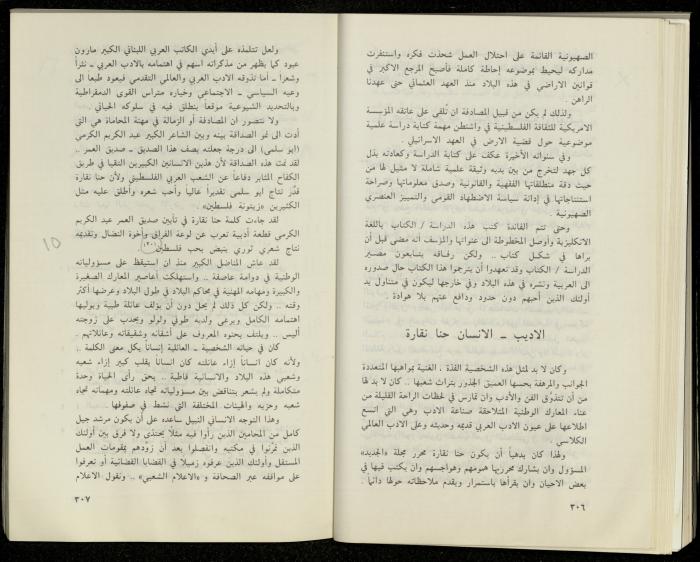 الصهيونية القائمة على احتلال العمل شحذت فكره واستنفرت
مداركه ليحيط بموضوعه إحاطة كاملة فأصبح المرجع الاكبر في
قوانين الاراضي في هذه البلاد منذ العهد العثماني حتى عهدنا
الراهن .
ولذلك لم يكن من قبيل المصادفة ان تلقى على عاتقه المؤسسة
الامريكية للثقافة الفلسطينية في واشنطن مهمة كتابة دراسة علمية
موضوعية حول قضية الارض في العهد الاسرائيلي .
وفي سنواته الأخيرة عكف على كتابة الدراسة وكعادته بذل
كل جهد لتخرج من بين يديه وثيقة علمية شاملة لا مثيل لها من
حيث دقة منطلقاتها الفقهية والقانونية وصدق معلوماتها وصراحة
استنتاجاتها في إدانة سياسة الاضطهاد القومي والتمييز العنصري
الصهيونية .
وحتى تتم الفائدة كتب هذه الدراسة / الكتاب باللغة
الانكليزية وأوصل المخطوطة الى عنوانها والمؤسف أنه مضى قبل أن
يراها في شكل كتاب .. ولكن رفاقه يتابعون مصير
الدراسة / الكتاب وقد تعهدوا أن يترجموا هذا الكتاب حال صدوره
الى العربية ونشره في هذه البلاد وفي خارجها ليكون في متناول يد
أولئك الذين أحبهم دون حدود ودافع عنهم بلا هوادة
الاديب ــ الانسان حنا نقارة
وكان لا بد لمثل هذه الشخصية الفذة ، الغنية بمواهبها المتعددة
الجوانب والمرهفة بحسها العميق الجذور بتراث شعبها .. كان لا بد لها
من أن تتذوق الفن والأدب وان تمارس في لحظات الراحة القليلة من
عناء المعارك الوطنية المتلاحقة صناعة الادب وهي التي اتسع
اطلاعها على عيون الادب العربي قديمه وحديثه وعلى الادب العالمي
الكلاسي .
ولهذا كان بدهياً أن يكون حنا نقارة محرر مجلة «الجديد»
المسؤول وان يشارك محرريها همومهم وهواجسهم وان يكتب فيها في
بعض الاحيان وان يقرأها باستمرار ويقدم ملاحظاته حولها دائما .
٣٠٦
ولعل تتلمذه على أيدي الكاتب العربي اللبناني الكبير مارون
عبود كما يظهر من مذكراته اسهم في اهتمامه بالادب العربي ــ نثراً
وشعراً ــ أما تذوقه الادب العربي والعالمي التقدمي فيعود طبعا الى
وعيه السياسي ــ الاجتماعي وخياره متراس القوى الديمقراطية
وبالتحديد الشيوعية موقعاً ينطلق فيه في سلوكه الحياتي .
ولا نتصور ان المصادفة أو الزمالة في مهنة المحاماة هي التي
أدت الى نمو الصداقة بينه وبين الشاعر الكبير عبد الكريم الكرمي
(ابو سلمى) الى درجة جعلته يصف هذا الصديق ــ صديق العمر ..
لقد نمت هذه الصداقة لأن هذين الانسانين الكبيرين التقيا في طريق
الكفاح المثابر دفاعاً عن الشعب العربي الفلسطيني ولأن حنا نقارة
قدّر نتاج ابو سلمى تقديراً عالياً وأحب شعره وأطلق عليه مثل
الكثيرين «زيتونة فلسطين» .
لقد جاءت كلمة حنا نقارة في تأبين صديق العمر عبد الكريم
الكرمي قطعة أدبية تعرب عن لوعة الفراق وأخوة النضال وتقديمه
نتاج شعري ثوري ينبض بحب فلسطين
لقد عاش المناضل الكبير منذ ان استيقظ على مسؤولياته
الوطنية في دوامة عاصفة .. واستهلكت أعاصير المعارك الصغيرة
والكبيرة ومهامه المهنية في محاكم البلاد في طول البلاد وعرضها أكثر
وقته .. ولكن كل ذلك لم يحل دون أن يؤلف عائلة طيبة ويوليها
اهتمامه الكامل ويرعى ولديه طوني ولولو ويحدب على زوجته
أليس .. ويلتف بحنوه المعروف على أشقائه وشقيقاته وعائلاتهم .
كان في حياته الشخصية ــ العائلية إنساناً بكل معنى الكلمة ..
ولأنه كان انساناً إزاء عائلته كان انساناً بقلب كبير إزاء شعبه
وشعبي هذه البلاد والانسانية قاطبة .. بحق رأى الحياة وحدة
متكاملة ولم يشعر بتناقض بين مسؤولياته تجاه عائلته ومهماته تجاه
شعبه وحزبه والهيئات المختلفة التي نشط في صفوفها .
وهذا التوجه الانساني النبيل ساعده على أن يكون مرشد جيل
كامل من المحامين الذين رأوا فيه مثلاً يحتذى ولا فرق بين أولئك
الذين تمرّنوا في مكتبه وانفصلوا بعد أن زوّدهم بمقومات العمل
المستقل وأولئك الذين عرفوه زميلاً في القضايا القضائية أو تعرفوا
على مواقفه عبر الصحافة و «الاعلام الشعبي» .. ونقول الاعلام
٣٠٧